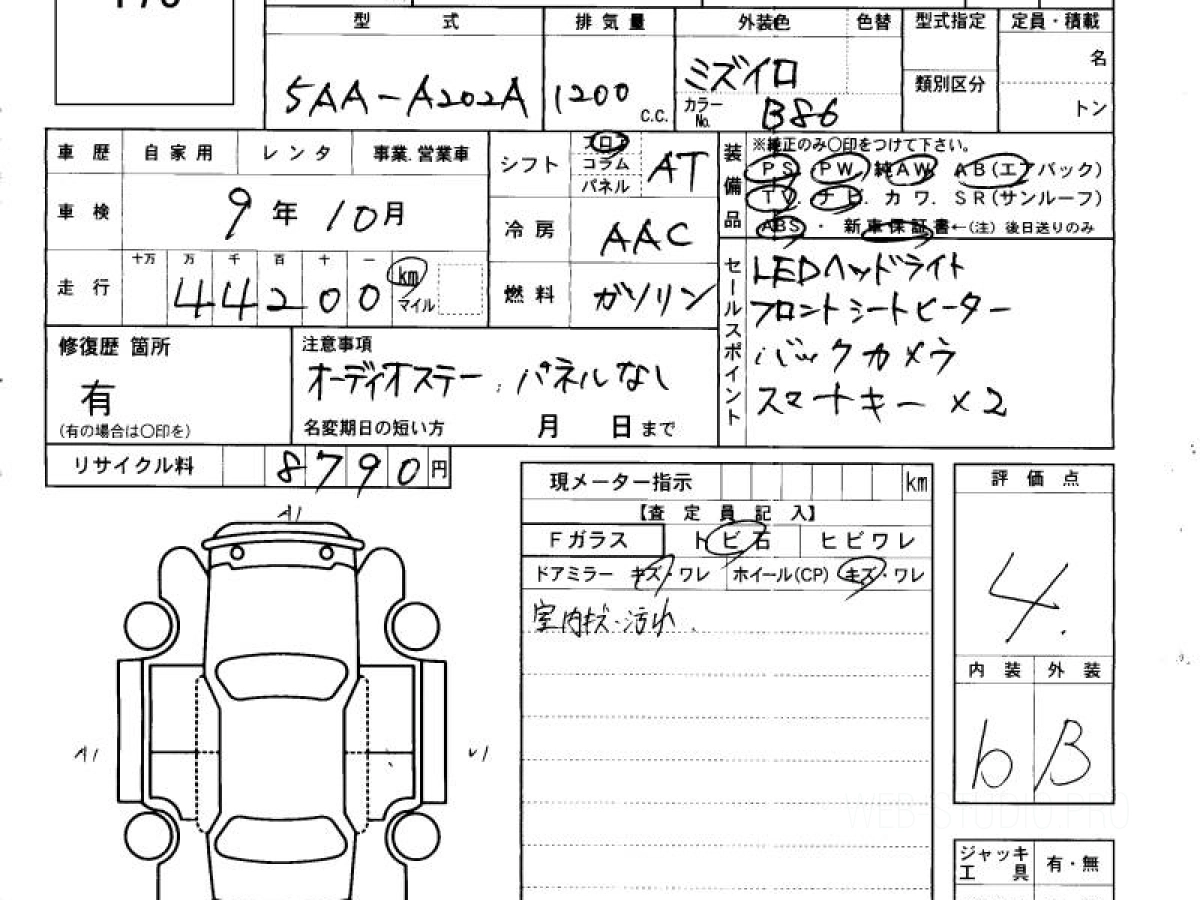 型 式 排気量 外装色 色替 型式指定 定員・積載
5AA-A202A 1200 c.c. ミズイロ 名
カラーNo. B86 類別区分 トン
車歴 自家用 レンタ 事業.営業車 シフト フロア コラム パネル AT
車検 9年10月 冷房 AAC
走行 十万 万 千 百 十 一 44200 km マイル 燃料 ガソリン
装備品 ※純正のみ○印をつけて下さい。
PS. PW. 純AW AB(エアバック)
TV. ナビ. カワ. SR(サンルーフ)
ABS ・ 新車保証書←(注) 後日送りのみ
セールスポイント LEDヘッドライト
フロントシートヒーター
バックカメラ
スマートキー×2
修復歴 箇所
有
(有の場合は○印を)
注意事項
オーディオステー、パネルなし
名変期日の短い方 月 日まで
リサイクル料 8790円
現メーター指示 km
【査定員記入】
Fガラス トビ石 ヒビワレ
ドアミラー キズ・ワレ ホイール(CP) キズ・ワレ
室内キズ・汚れ
評価点
4.
内装 外装
b B
A1
A1 U1
ジャッキ
工具 有・無
WEB-STUDIO.PRO